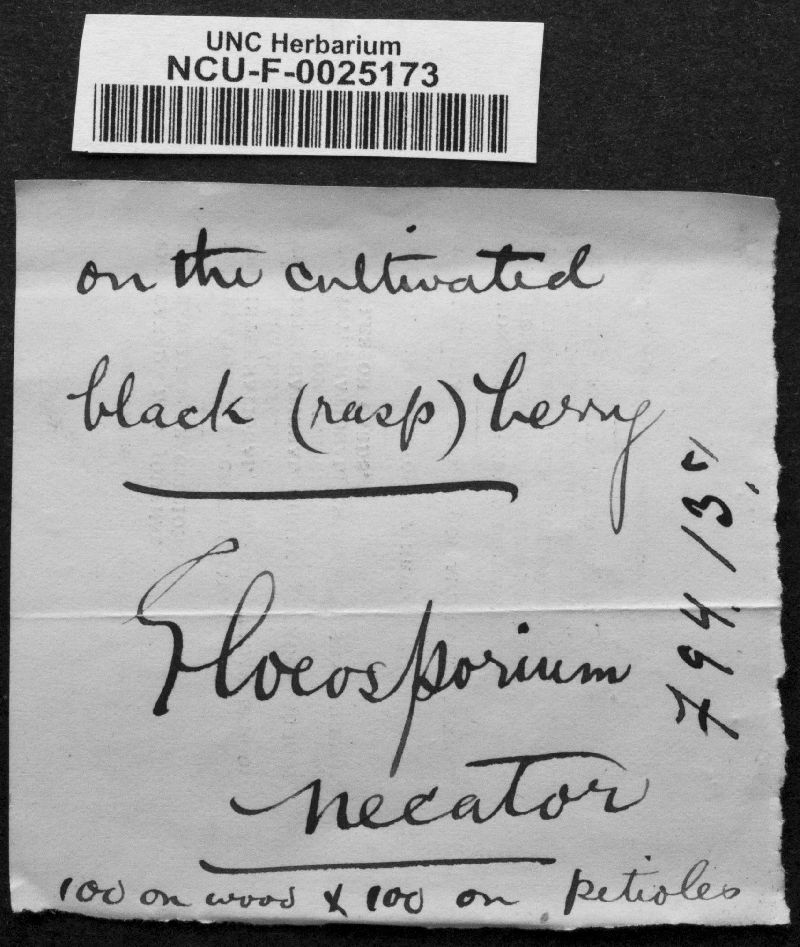 UNC Herbarium
NCU-F-0025173
on the cultivated
black (rasp) berry
Gloeosporium
necator
100 on wood & 100 on petioles
794.